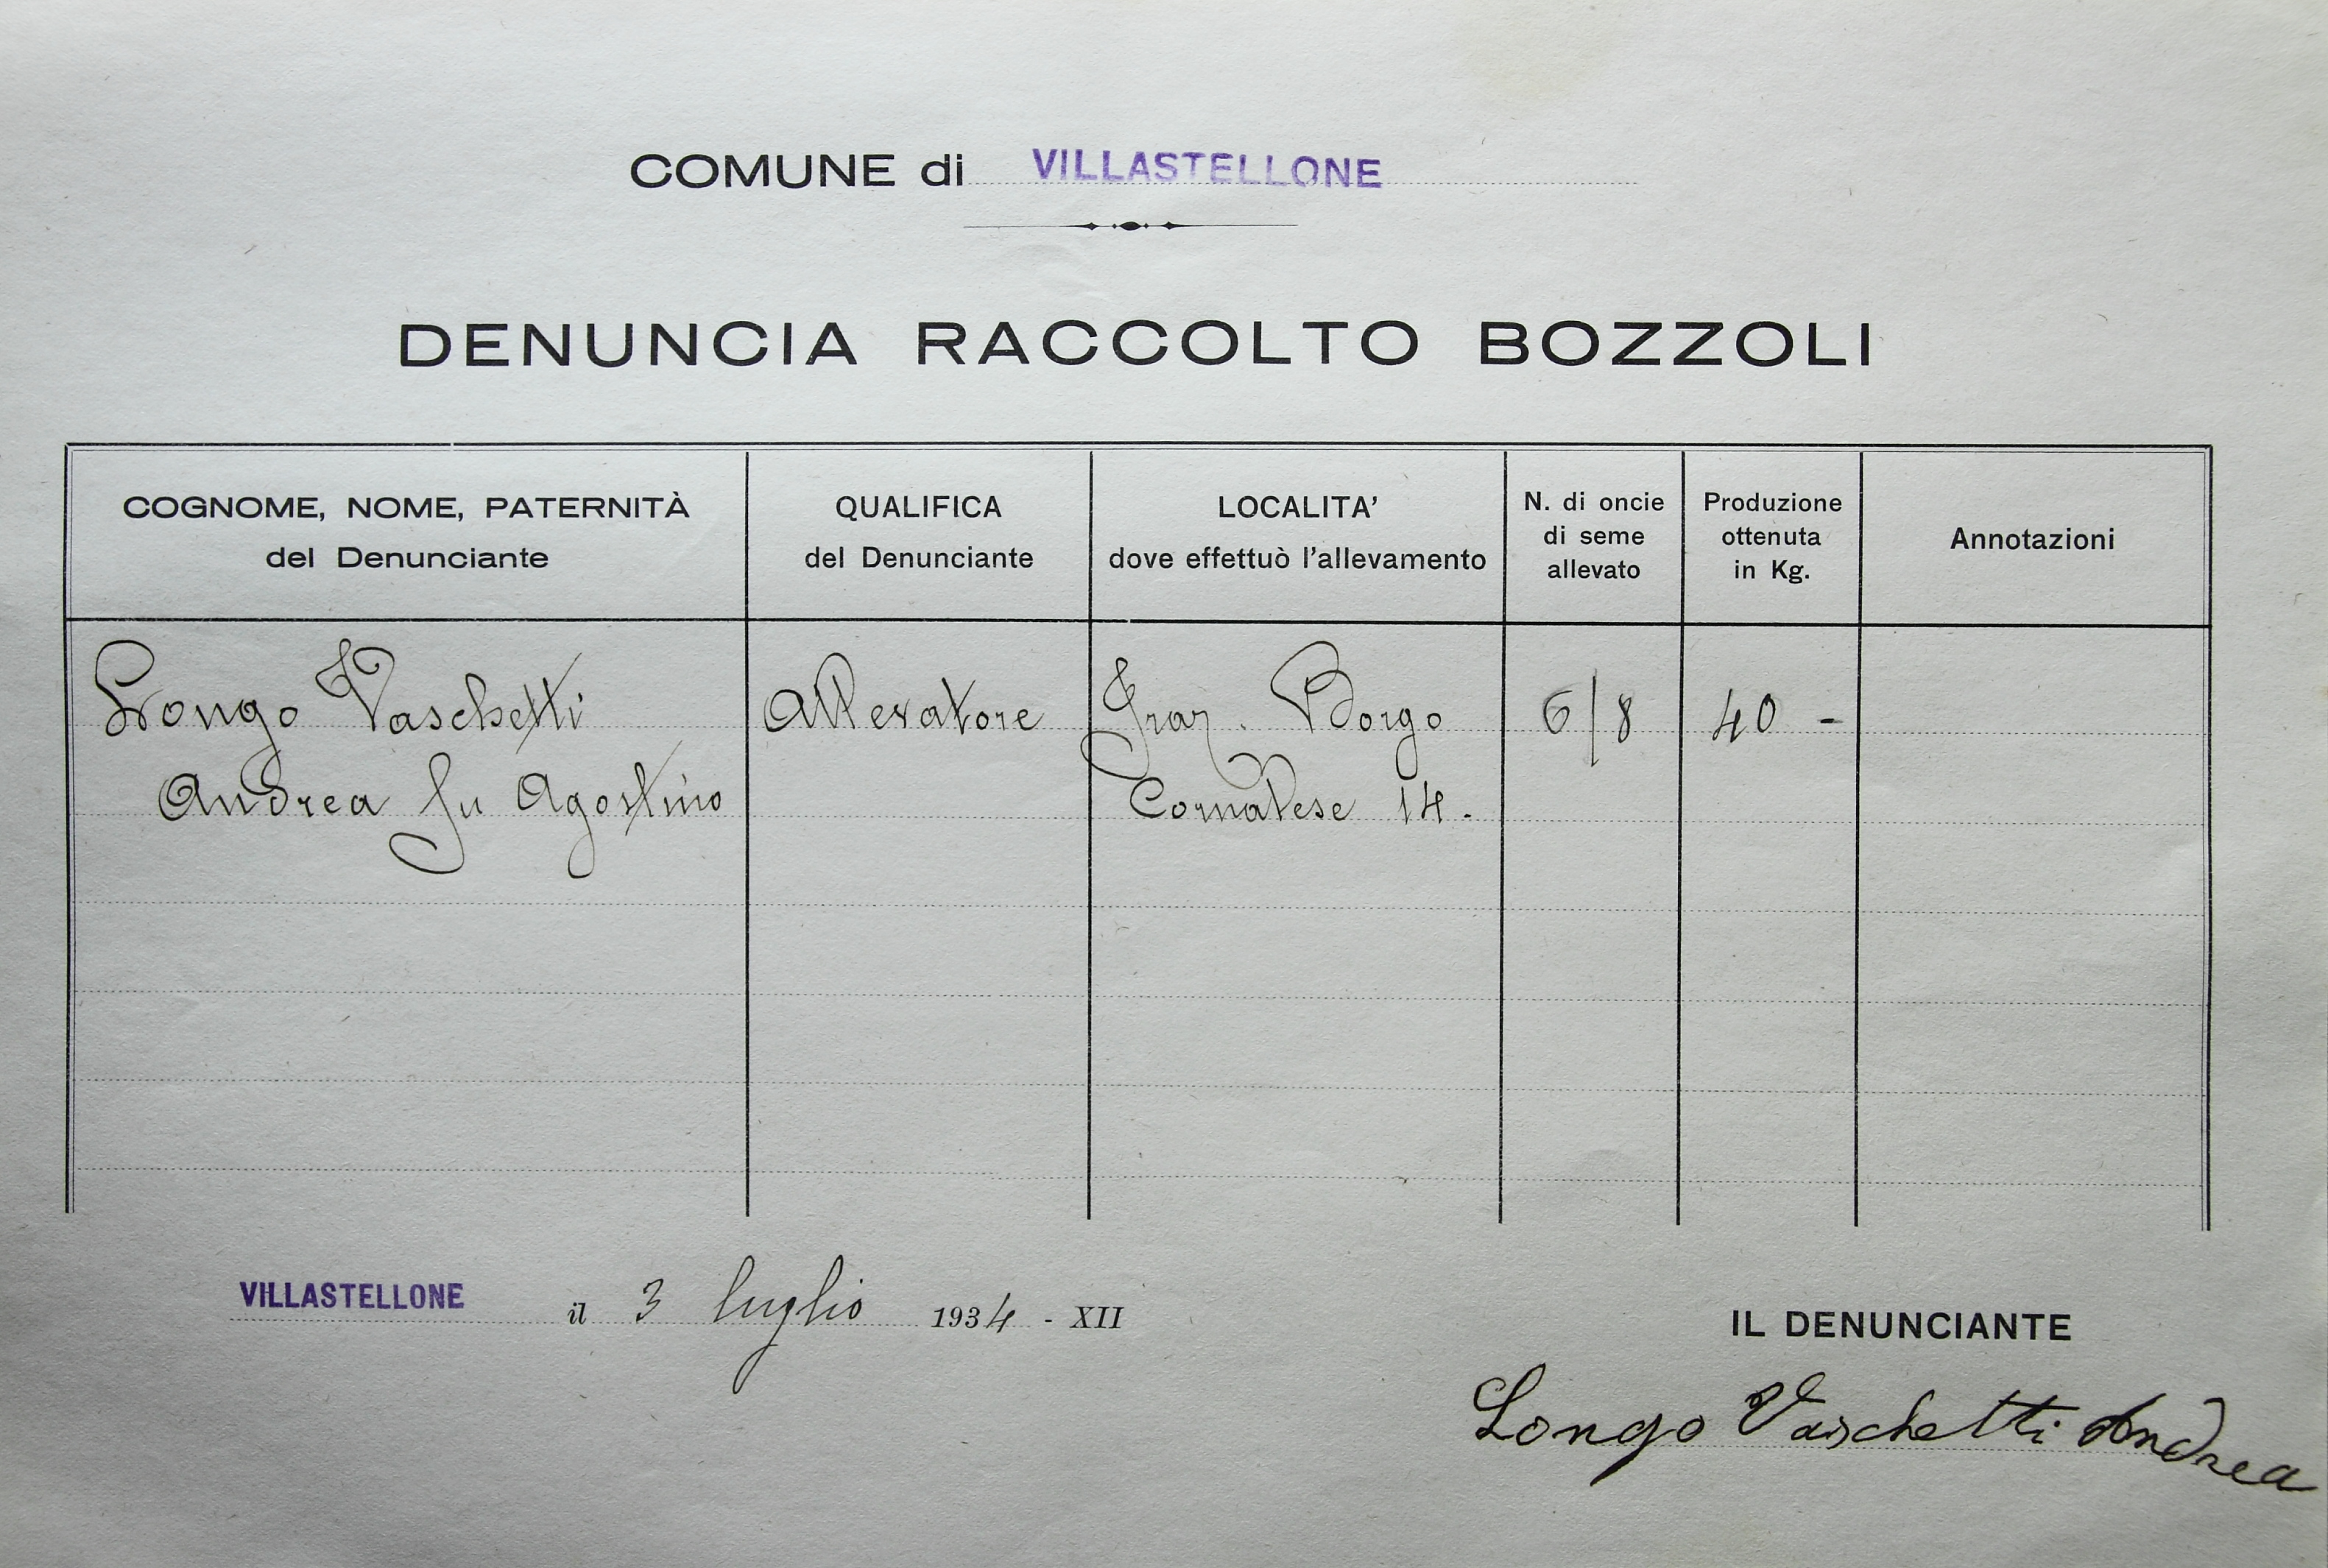 COMUNE di VILLASTELLONE
DENUNCIA RACCOLTO BOZZOLI
COGNOME, NOME, PATERNITÀ
del Denunciante
QUALIFICA
del Denunciante
LOCALITA'
dove effettuò l'allevamento
N. di oncie
di seme
allevato
Produzione
ottenuta
in Kg.
Annotazioni
Longo Vaschetti
Andrea fu Agostino
Allevatore
Fraz. Borgo
Cornalese 14.
6/8
40 -
VILLASTELLONE il 3 luglio 1934 - XII
IL DENUNCIANTE
Longo Vaschetti Andrea